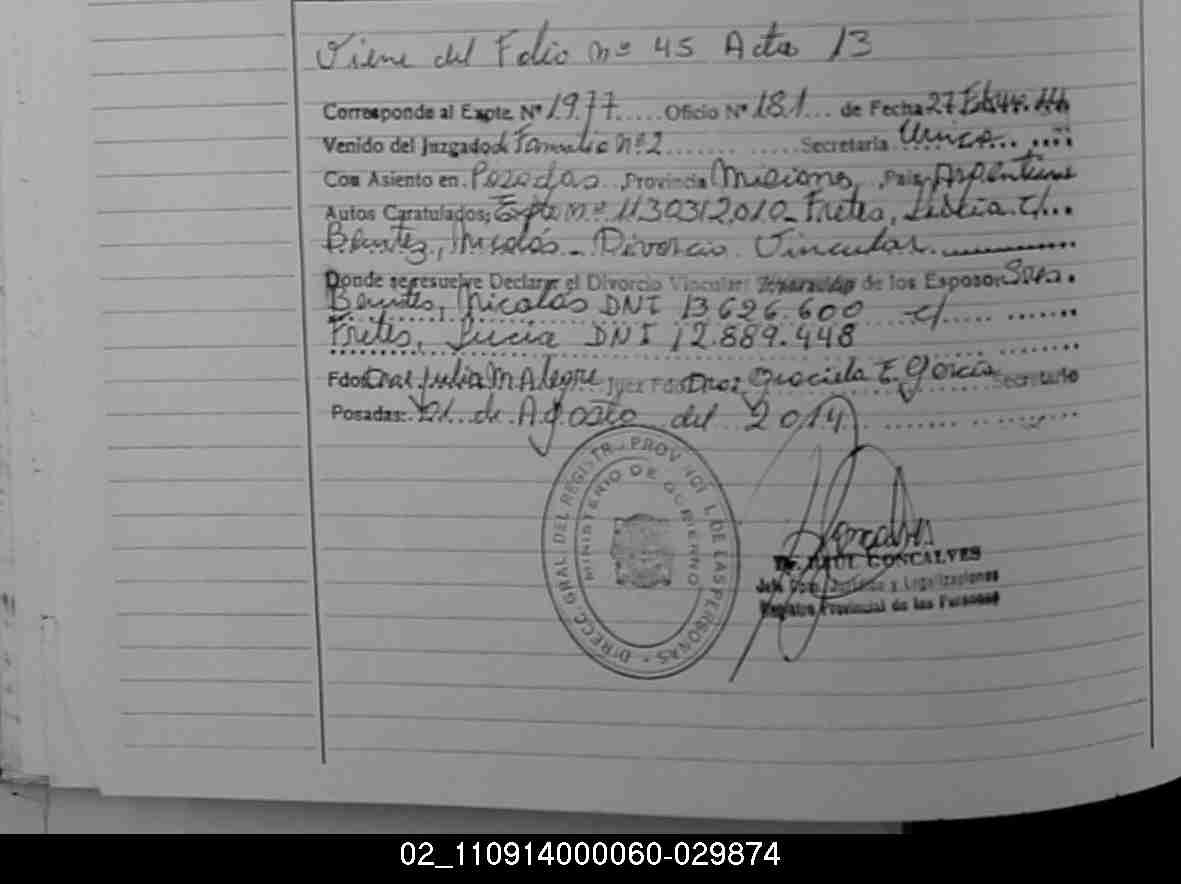 Viene del Folio nº 45 Acta 13
Corresponde al Expte. Nº 1977 ..... Oficio Nº 181 ... de Fecha 27
Venido del Juzgado de Familia nº 2 ........ Secretaria Unica .......
Con Asiento en Posadas .. Provincia Misiones, País Argentina
Autos Caratulados: Expte nº 11303/2.010 - Fretes, Lucia c/...
Benitez, Nicolás - Divorcio Vincular.
Donde se resuelve Declarar el Divorcio Vincular: Separación de los Esposos: Sres.
Benites, Nicolás DNI 13.626.600 c/ ..... .......
Fretes, Lucia DNI 12.889.448
Fdo: Dra: Julia M Alegre Juez Fdo: Dra: Graciela E. Garcia Secretario
Posadas: 21 de Agosto del 2014
DIRECC. GRAL. DEL REGISTR. PROVINCIAL DE LAS PERSONAS
MINISTERIO DE GOBIERNO
Goncalves
Dr. RAUL GONCALVES
Jefe Dpto. Jurídico y Legalizaciones
Registro Provincial de las Personas
02_110914000060-029874